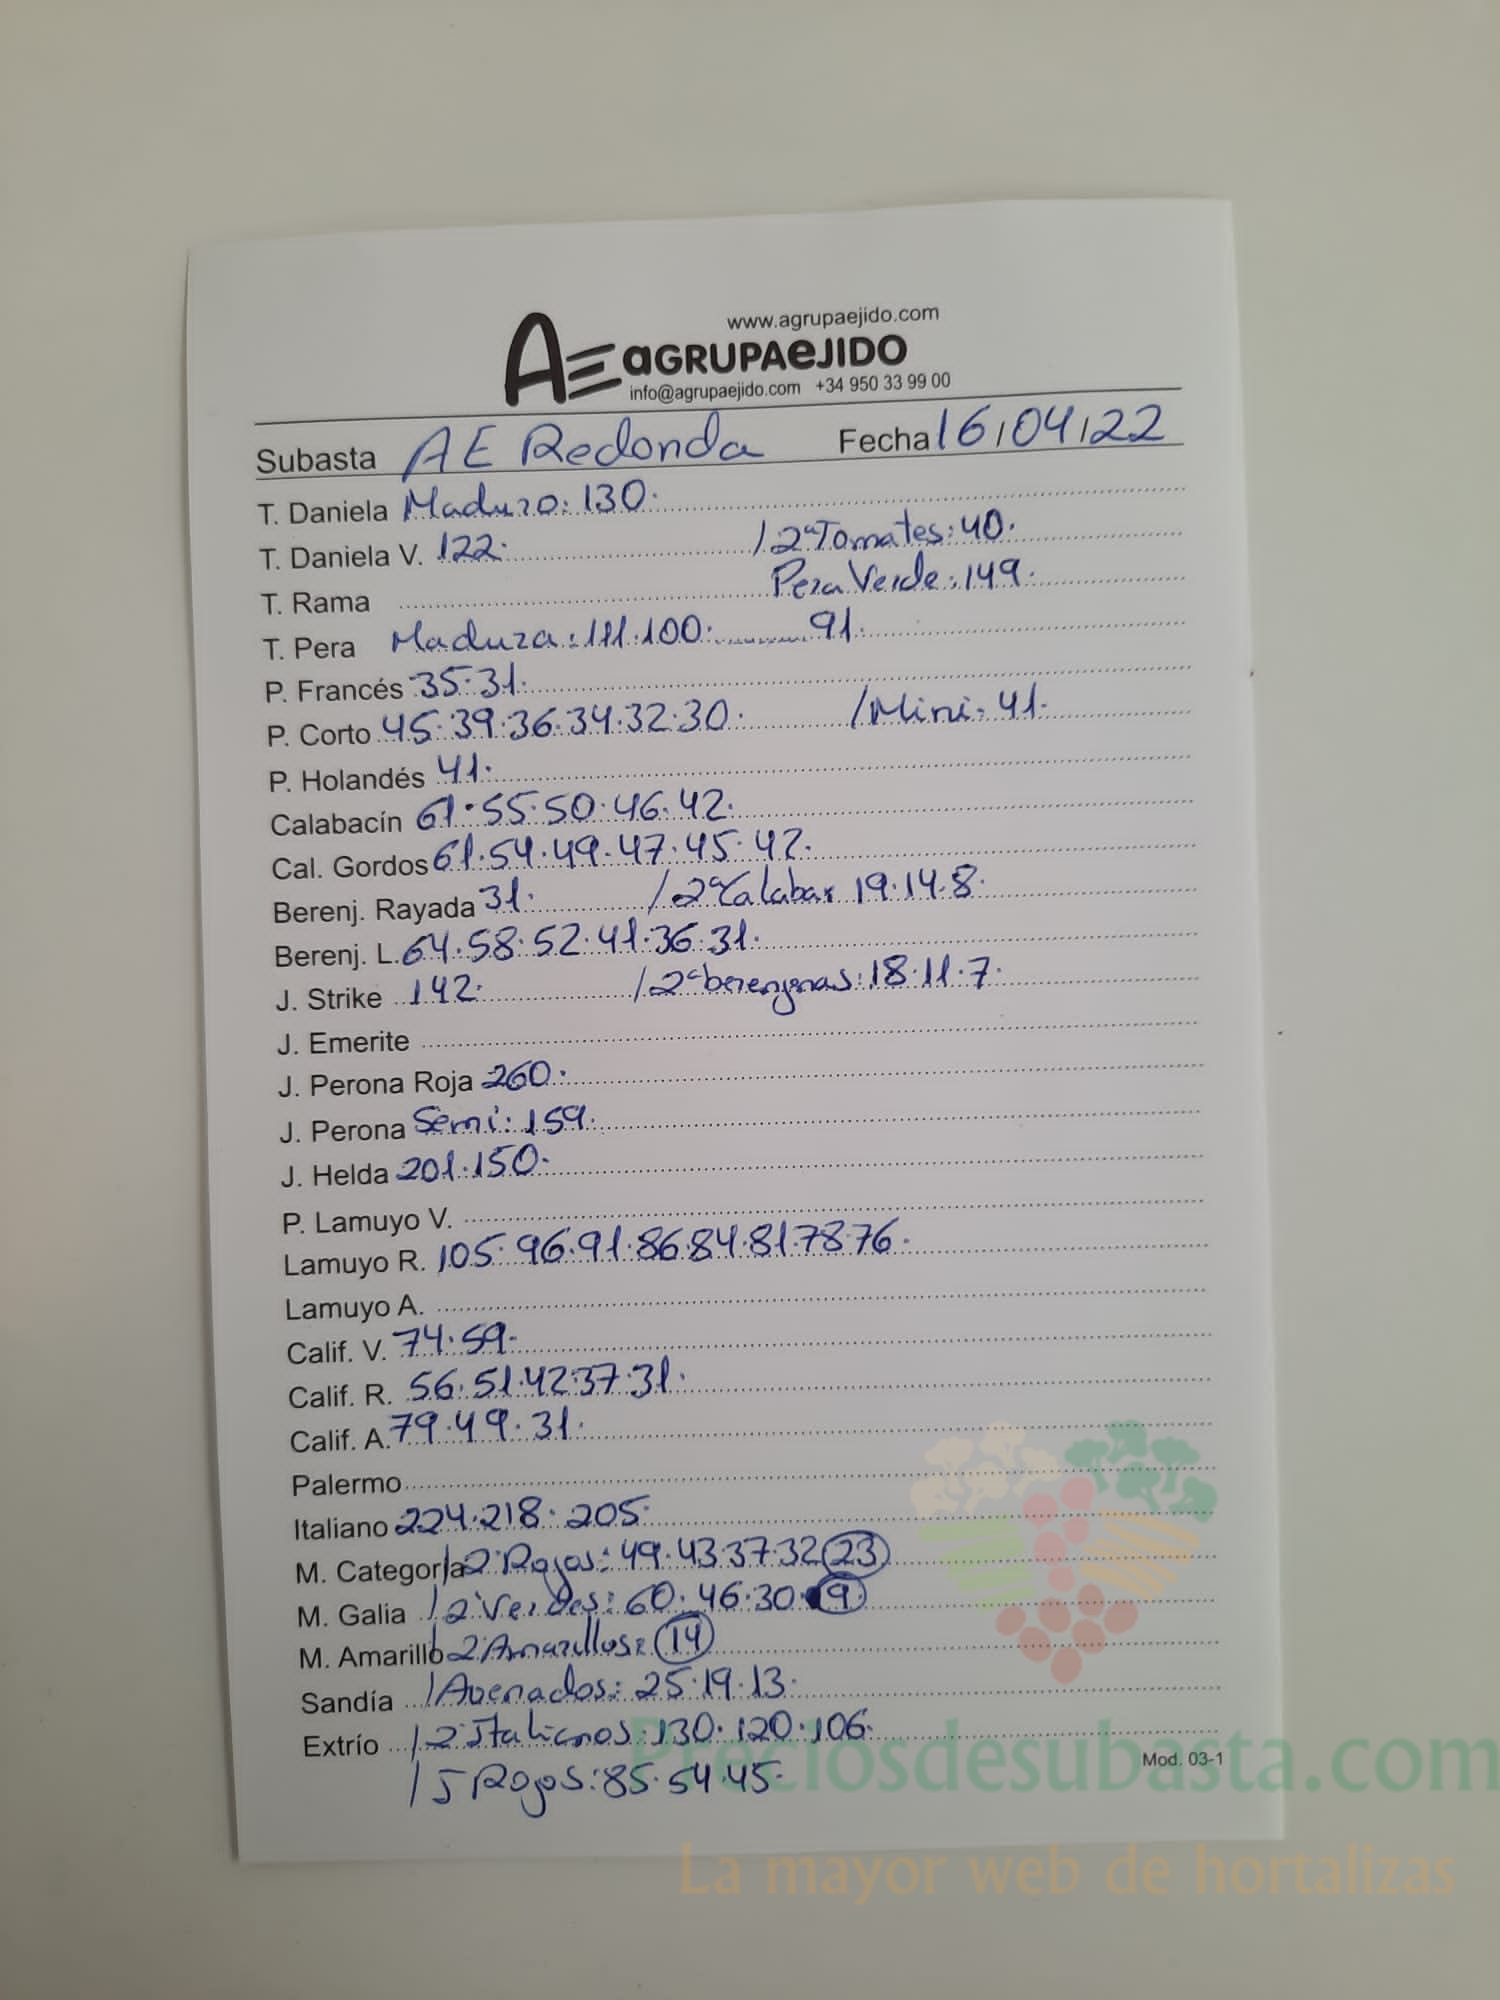 www.agrupaejido.com
AE aGRUPAeJIDO
info@agrupaejido.com +34 950 33 99 00
Subasta AE Redonda Fecha 16/04/22
T. Daniela Maduro: 130.
T. Daniela V. 122. / 2ª Tomates: 40.
T. Rama Pera Verde: 149.
T. Pera Madura: 111. 100. 91.
P. Francés 35. 31.
P. Corto 45. 39. 36. 34. 32. 30. / Mini: 41.
P. Holandés 41.
Calabacín 61. 55. 50. 46. 42.
Cal. Gordos 61. 54. 49. 47. 45. 42.
Berenj. Rayada 31. / 2ª Calabax 19. 14. 8.
Berenj. L. 64. 58. 52. 41. 36. 31.
J. Strike 142. / 2ª berenjenas: 18. 11. 7.
J. Emerite
J. Perona Roja 260.
J. Perona Semi: 159.
J. Helda 201. 150.
P. Lamuyo V.
Lamuyo R. 105. 96. 91. 86. 84. 81. 78. 76.
Lamuyo A.
Calif. V. 74. 59.
Calif. R. 56. 51. 42. 37. 31.
Calif. A. 79. 49. 31.
Palermo
Italiano 224. 218. 205.
M. Categoría / 2ª Rojos: 49. 43. 37. 32 23
M. Galia / 2ª Verdes: 60. 46. 30. 9
M. Amarillo / 2ª Amarillos: 14
Sandía / Asenados: 25. 19. 13.
Extrío / 2ª Italianos: 130. 120. 106.
/ J Rojos: 85. 54. 45.
Mod. 03-1
Preciosdesubasta.com
La mayor web de hortalizas